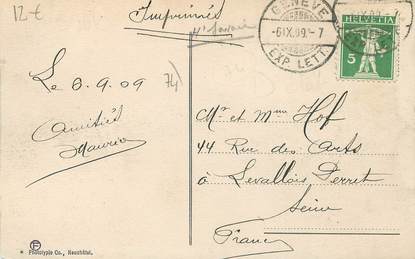 12 €
Imprimés
GENÈVE
-6IX.09.-7
EXP. LETT.
HELVETIA
5
Le 6.9.09
74)
Amitiés
Maurice
Mr et Mme Hof
44 Rue des Arts
à Levallois Perret
Seine
France
Phototypie Co., Neuchâtel.